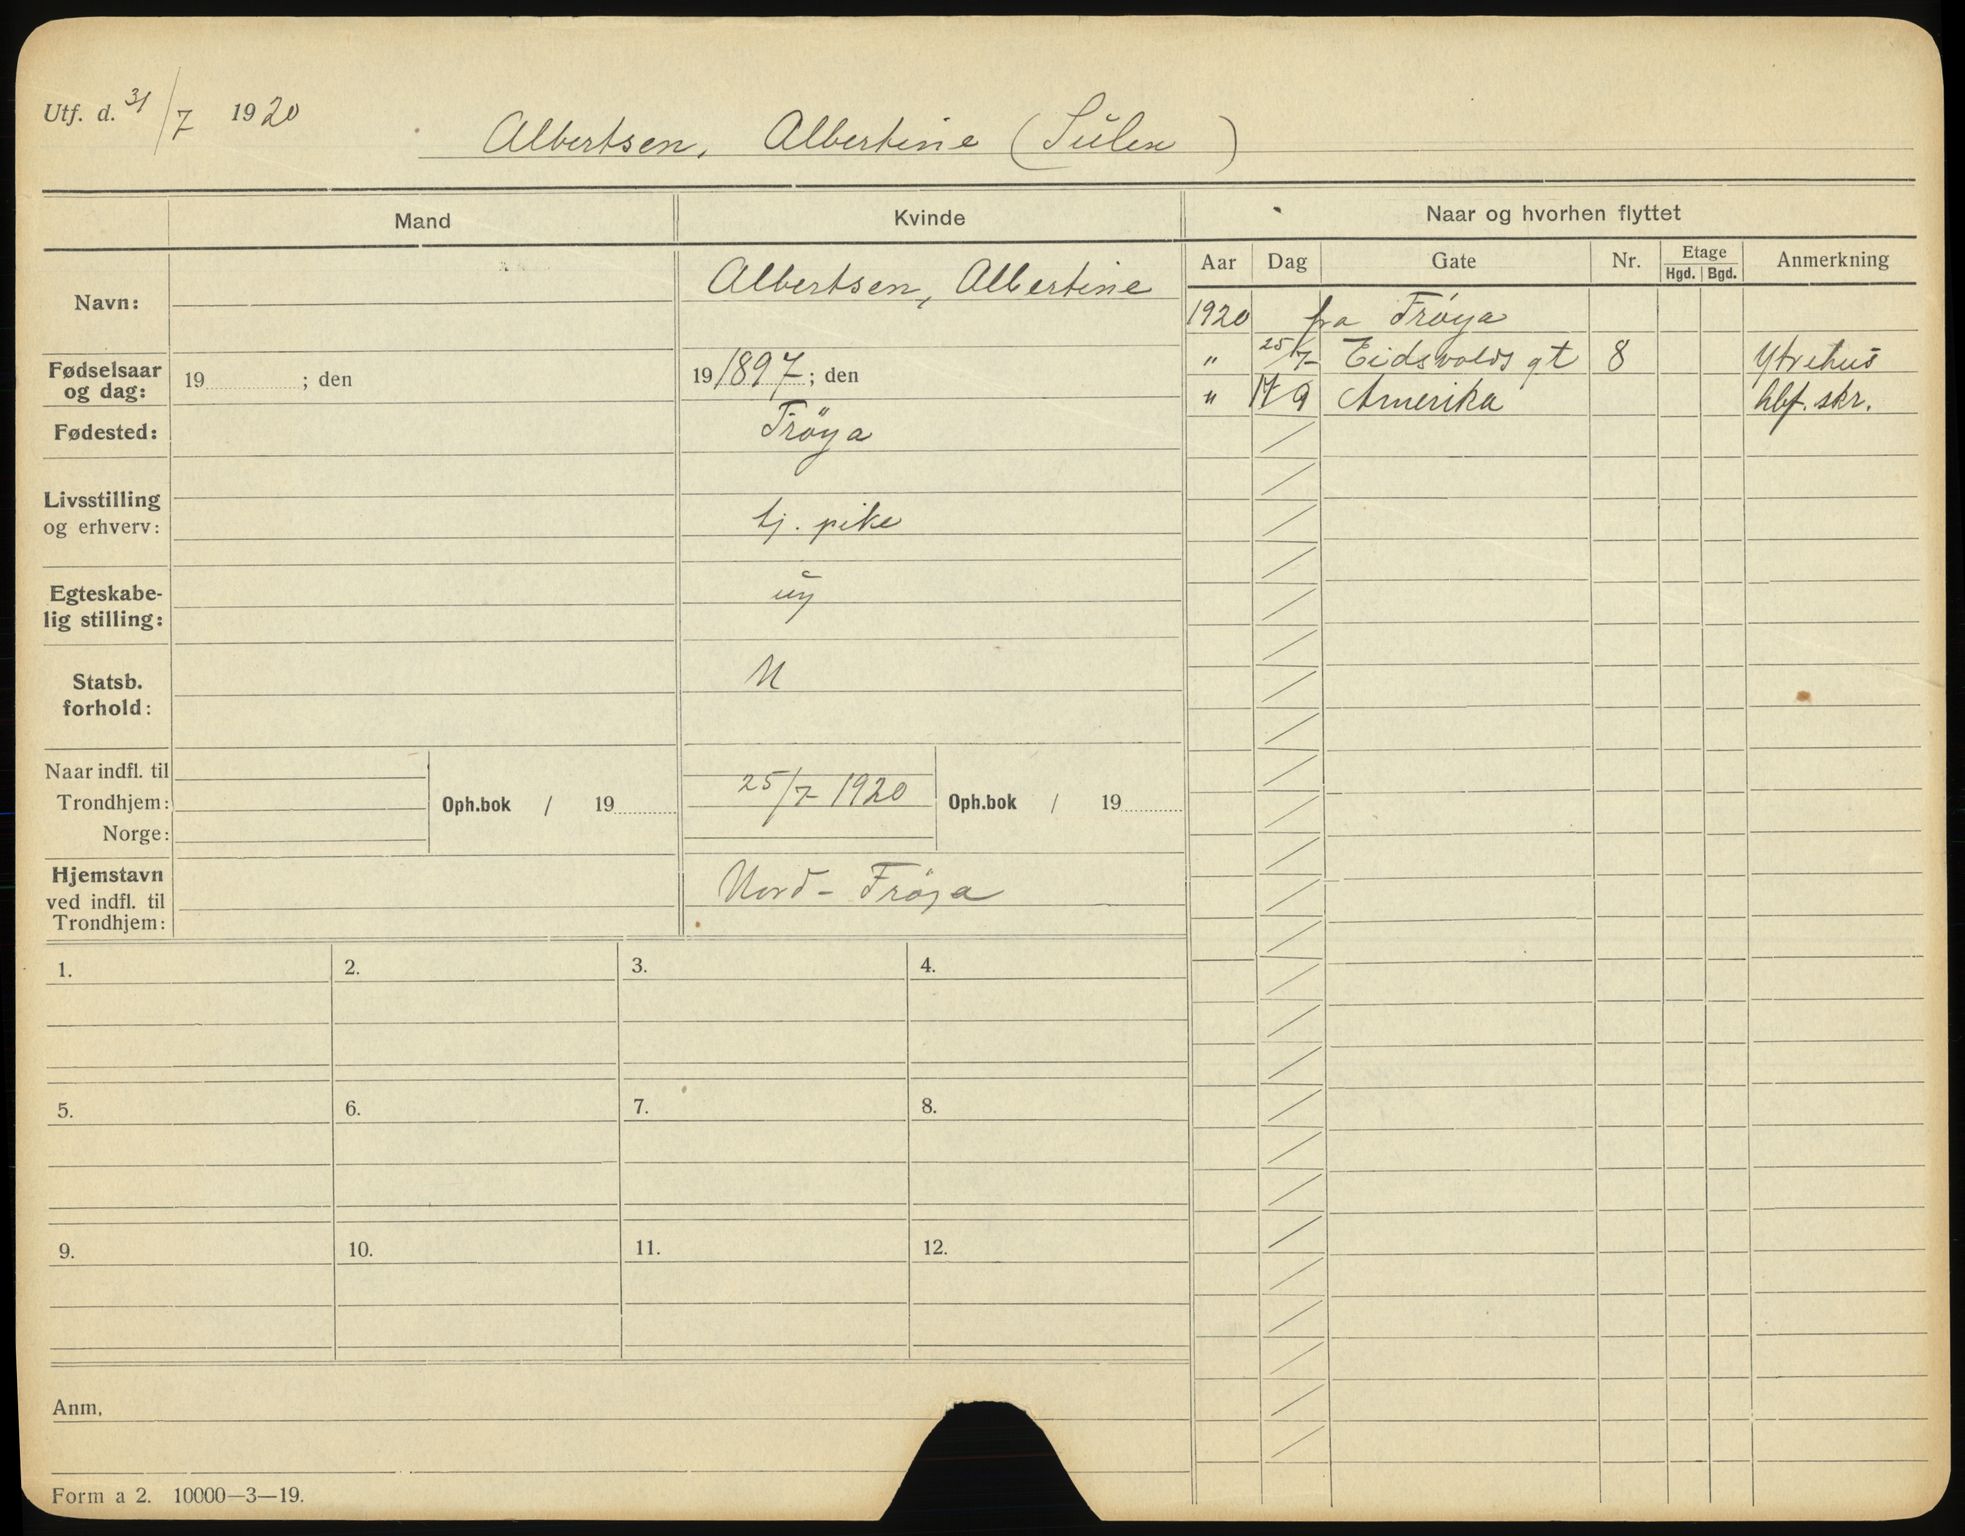 Utf. d. 31/7 1920
Albertsen, Albertine (Sulen)
Mand
Kvinde
Naar og hvorhen flyttet
Aar Dag Gate Nr. Etage Hgd. Bgd. Anmerkning
Navn:
Albertsen, Albertine
1920 fra Frøya
" 25/7 Eidsvolds gt 8 Ytrehus
" 17/9 Amerika hbf. skr.
Fødselsaar og dag: 19 ; den
19 1897 ; den
Fødested:
Fröya
Livsstilling
og erhverv:
tj. pike
Egteskabe-
lig stilling:
ug
Statsb.
forhold:
N
Naar indfl. til
Trondhjem:
Norge:
Oph.bok / 19
25/7 1920
Oph.bok / 19
Hjemstavn
ved indfl. til
Trondhjem:
Nord-Fröya
1. 2. 3. 4.
5. 6. 7. 8.
9. 10. 11. 12.
Anm,
Form a 2. 10000—3—19.